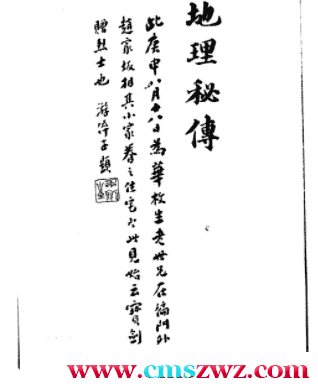 地理秘傳
此庚申八月十八日為華牧生老世兄在偏門外
趙家坂相其小家眷之住宅於此見始云寶劍
贈烈士也 游 子題
www.cmszwz.com